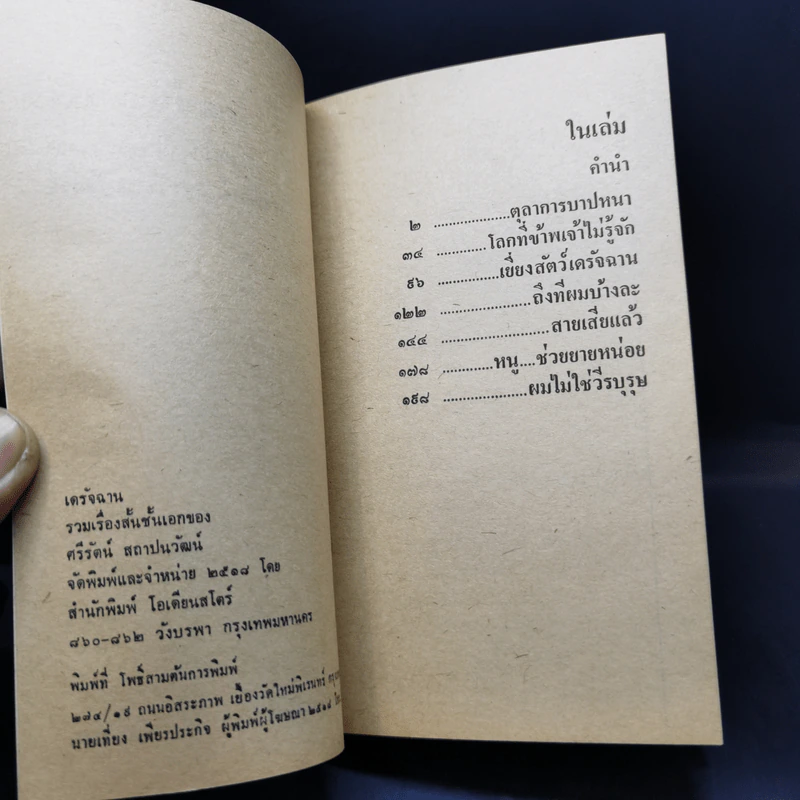 เดรัจฉาน
รวมเรื่องสั้นชั้นเอกของ
ศรีรัตน์ สถาปนวัฒน์
จัดพิมพ์และจำหน่าย ๒๕๑๘ โดย
สำนักพิมพ์ โอเดียนสโตร์
๘๖๐-๘๖๒ วังบรพา กรุงเทพมหานคร
พิมพ์ที่ โพธิ์สามต้นการพิมพ์
๒๘๔/๑๙ ถนนอิสระภาพ เยื้องวัดใหม่พิเรนทร์
นายเที่ยง เพียรประกิจ ผู้พิมพ์ผู้โฆษณา ๒๕๑๘
ในเล่ม
คำนำ
๒ ....................ตุลาการบาปหนา
๓๔ .............โลกที่ข้าพเจ้าไม่รู้จัก
๙๖ ................เยี่ยงสัตว์เดรัจฉาน
๑๒๒ ........................ถึงที่ผมบ้างละ
๑๔๔ .............................สายเสียแล้ว
๑๗๘ .............หนู....ช่วยยายหน่อย
๑๙๘ ......................ผมไม่ใช่วีรบุรุษ